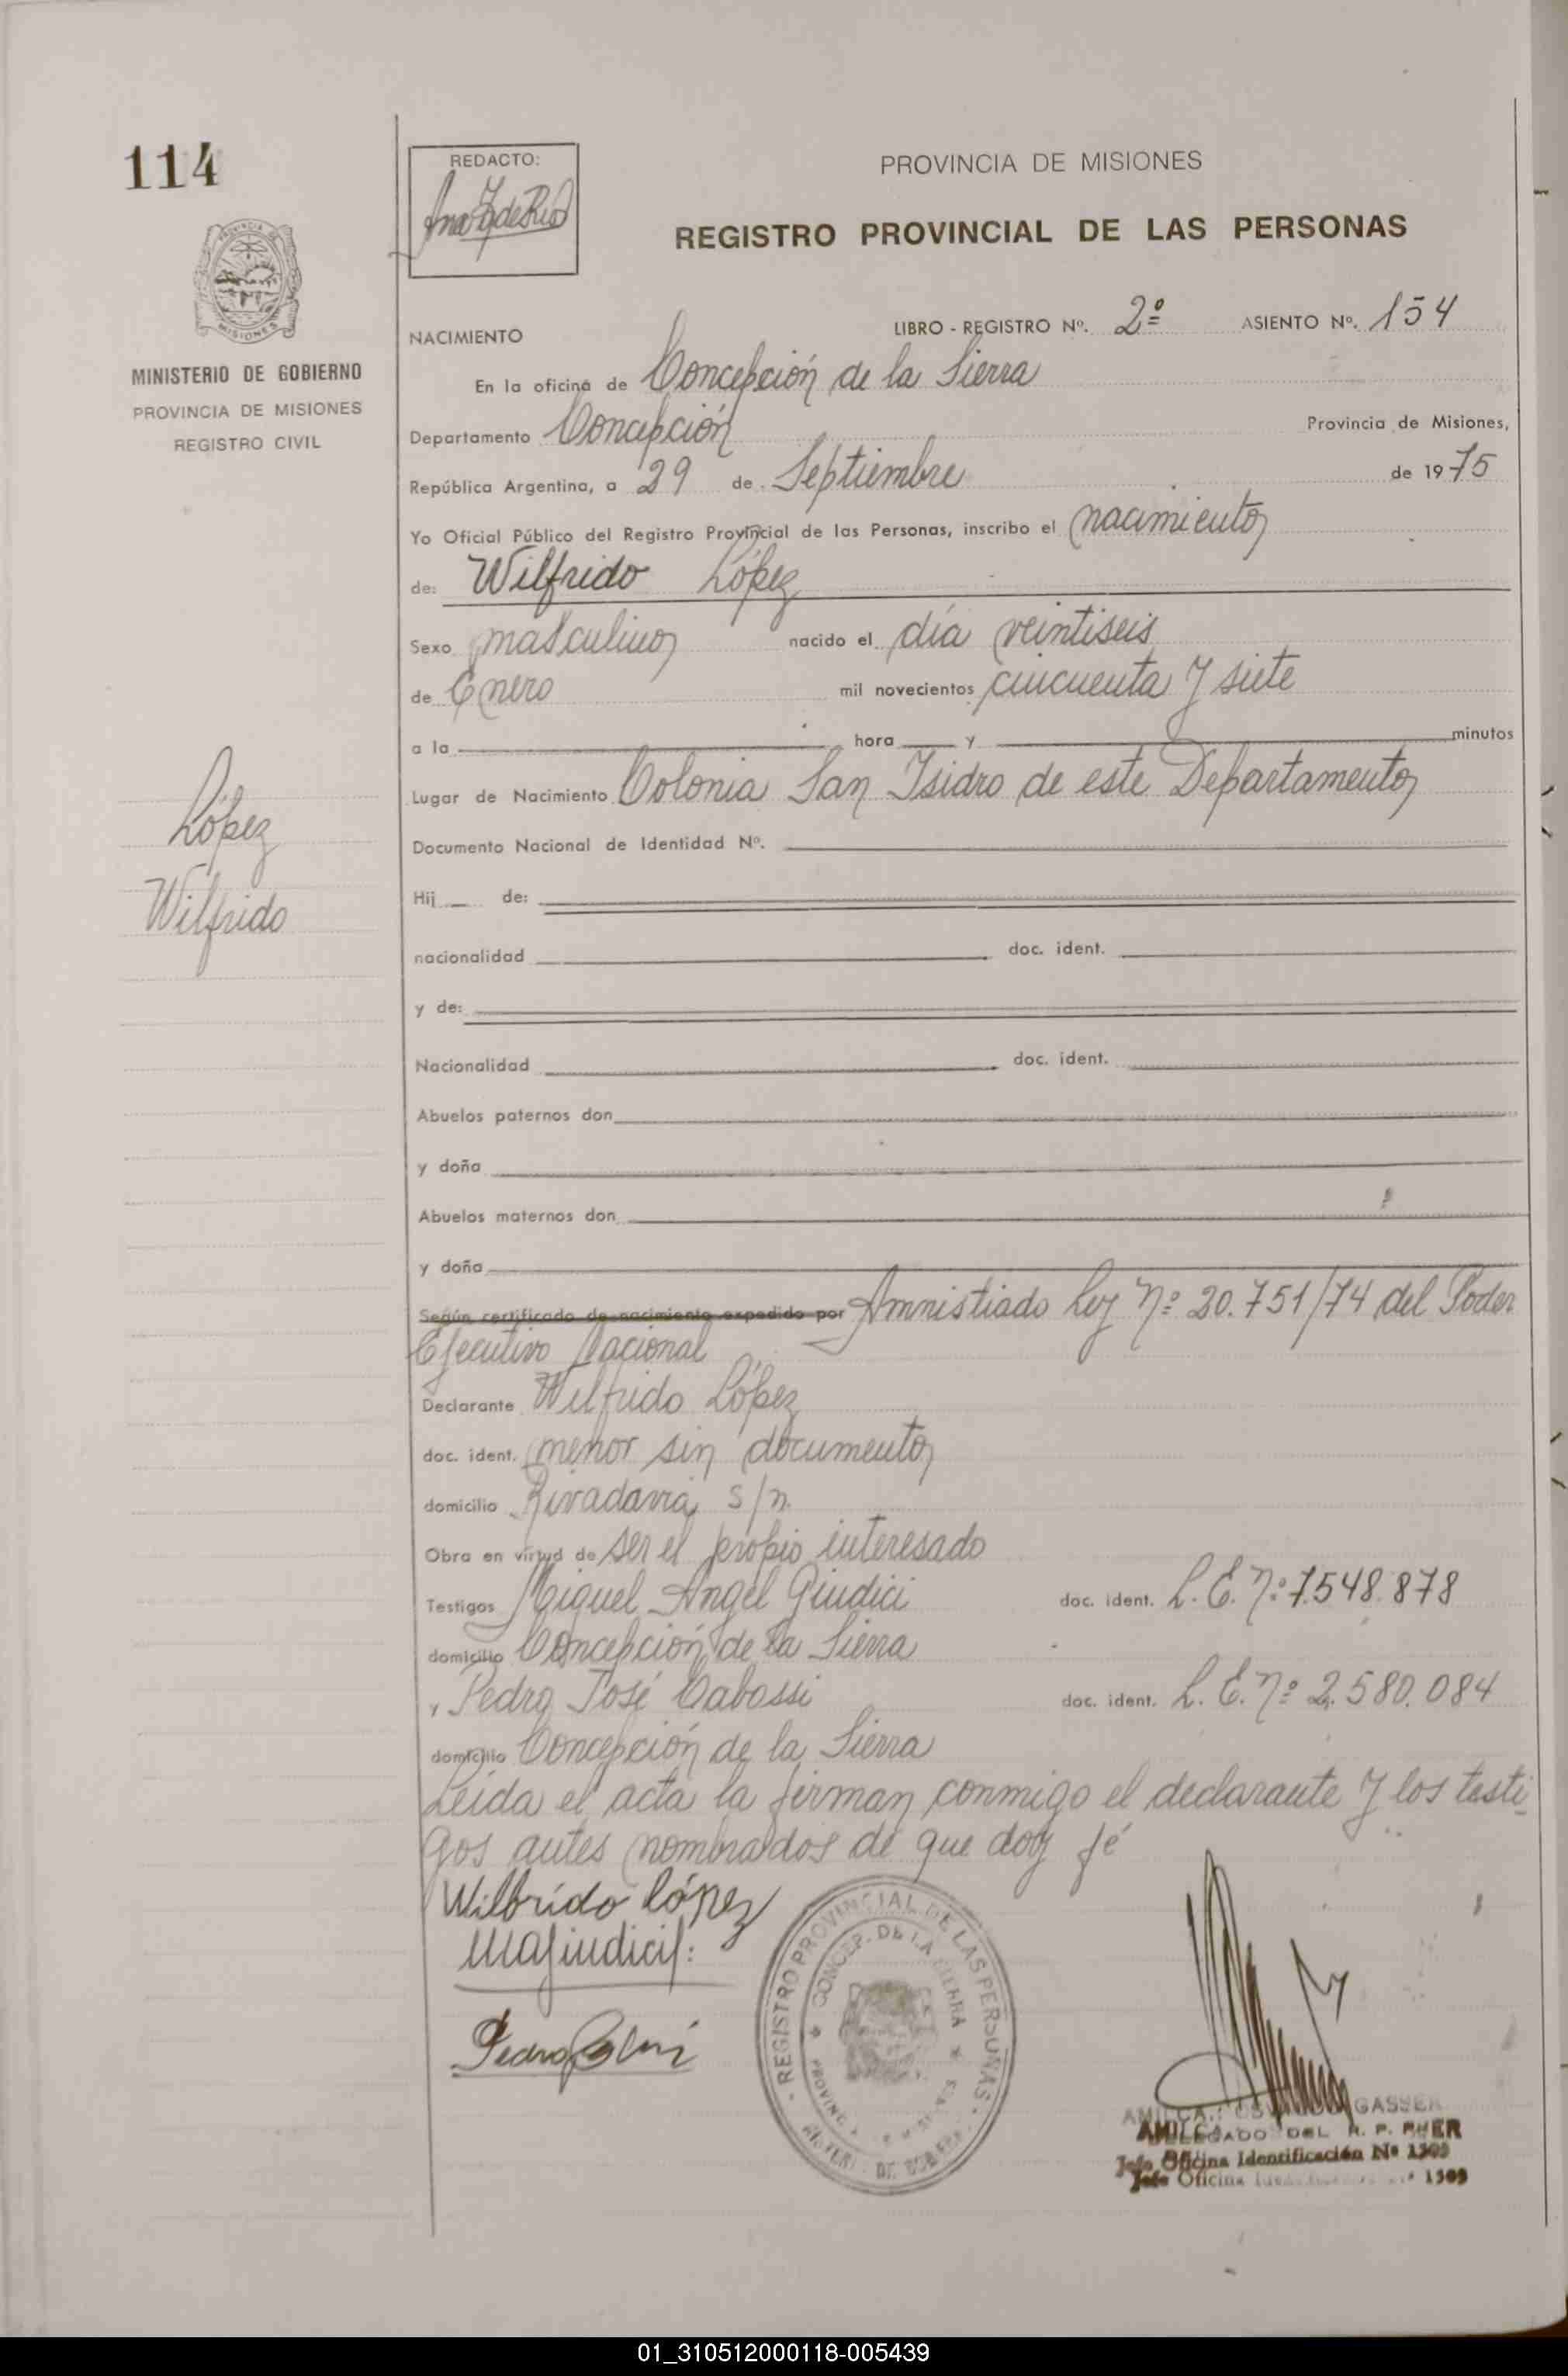 114
REDACTO:
PROVINCIA DE MISIONES
REGISTRO PROVINCIAL DE LAS PERSONAS
MISIONES
MINISTERIO DE GOBIERNO
PROVINCIA DE MISIONES
REGISTRO CIVIL
NACIMIENTO LIBRO - REGISTRO Nº. 2º ASIENTO Nº. 154
En la oficina de Concepción de la Sierra
Departamento Concepción Provincia de Misiones,
República Argentina, a 29 de Septiembre de 1975
Yo Oficial Público del Registro Provincial de las Personas, inscribo el nacimiento
de: Wilfrido López
Sexo masculino nacido el día veintiseis
de Enero mil novecientos cincuenta y siete
a la hora y minutos
Lugar de Nacimiento Colonia San Isidro de este Departamento
López
Wilfrido
Documento Nacional de Identidad Nº.
Hij de:
nacionalidad doc. ident.
y de:
Nacionalidad doc. ident.
Abuelos paternos don
y doña
Abuelos maternos don
y doña
Según certificado de nacimiento expedido por Amnistiado Ley nº 20.751/74 del Poder
Ejecutivo Nacional
Declarante Wilfrido López
doc. ident. menor sin documento
domicilio Rivadavia s/n.
Obra en virtud de ser el propio interesado
Testigos Miguel Angel Giudici doc. ident. L. E. nº 7.548.878
domicilio Concepción de la Sierra
y Pedro José Cabossi doc. ident. L. E. nº 2.580.084
domicilio Concepción de la Sierra
Leida el acta la firman conmigo el declarante y los testi
gos antes nombrados de que doy fé
Wilbrido López
MAGiudici
REGISTRO PROVINCIAL DE LAS PERSONAS
CONCEP. DE LA SIERRA
Pedro
GASSER
DELEGADO DEL R. P. P.
Jefe Oficina Identificación Nº 1309
Jefe Oficina 1309
01_310512000118-005439